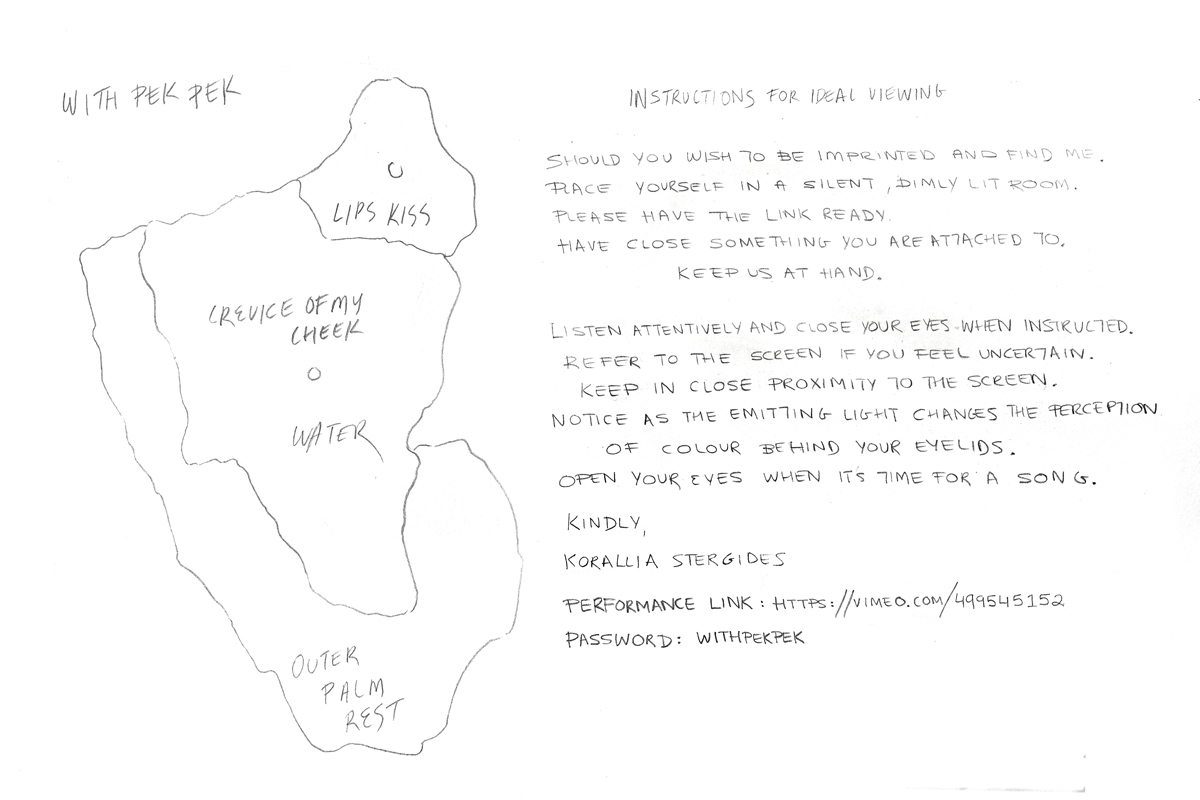 WITH PEK PEK
LIPS KISS
CREVICE OF MY
CHEEK
WATER
OUTER
PALM
REST
INSTRUCTIONS FOR IDEAL VIEWING
SHOULD YOU WISH TO BE IMPRINTED AND FIND ME.
PLACE YOURSELF IN A SILENT, DIMLY LIT ROOM.
PLEASE HAVE THE LINK READY.
HAVE CLOSE SOMETHING YOU ARE ATTACHED TO.
KEEP US AT HAND.
LISTEN ATTENTIVELY AND CLOSE YOUR EYES WHEN INSTRUCTED.
REFER TO THE SCREEN IF YOU FEEL UNCERTAIN.
KEEP IN CLOSE PROXIMITY TO THE SCREEN.
NOTICE AS THE EMITTING LIGHT CHANGES THE PERCEPTION
OF COLOUR BEHIND YOUR EYELIDS.
OPEN YOUR EYES WHEN IT'S TIME FOR A SONG.
KINDLY,
KORALLIA STERGIDES
PERFORMANCE LINK: HTTPS://VIMEO.COM/499545152
PASSWORD: WITHPEKPEK